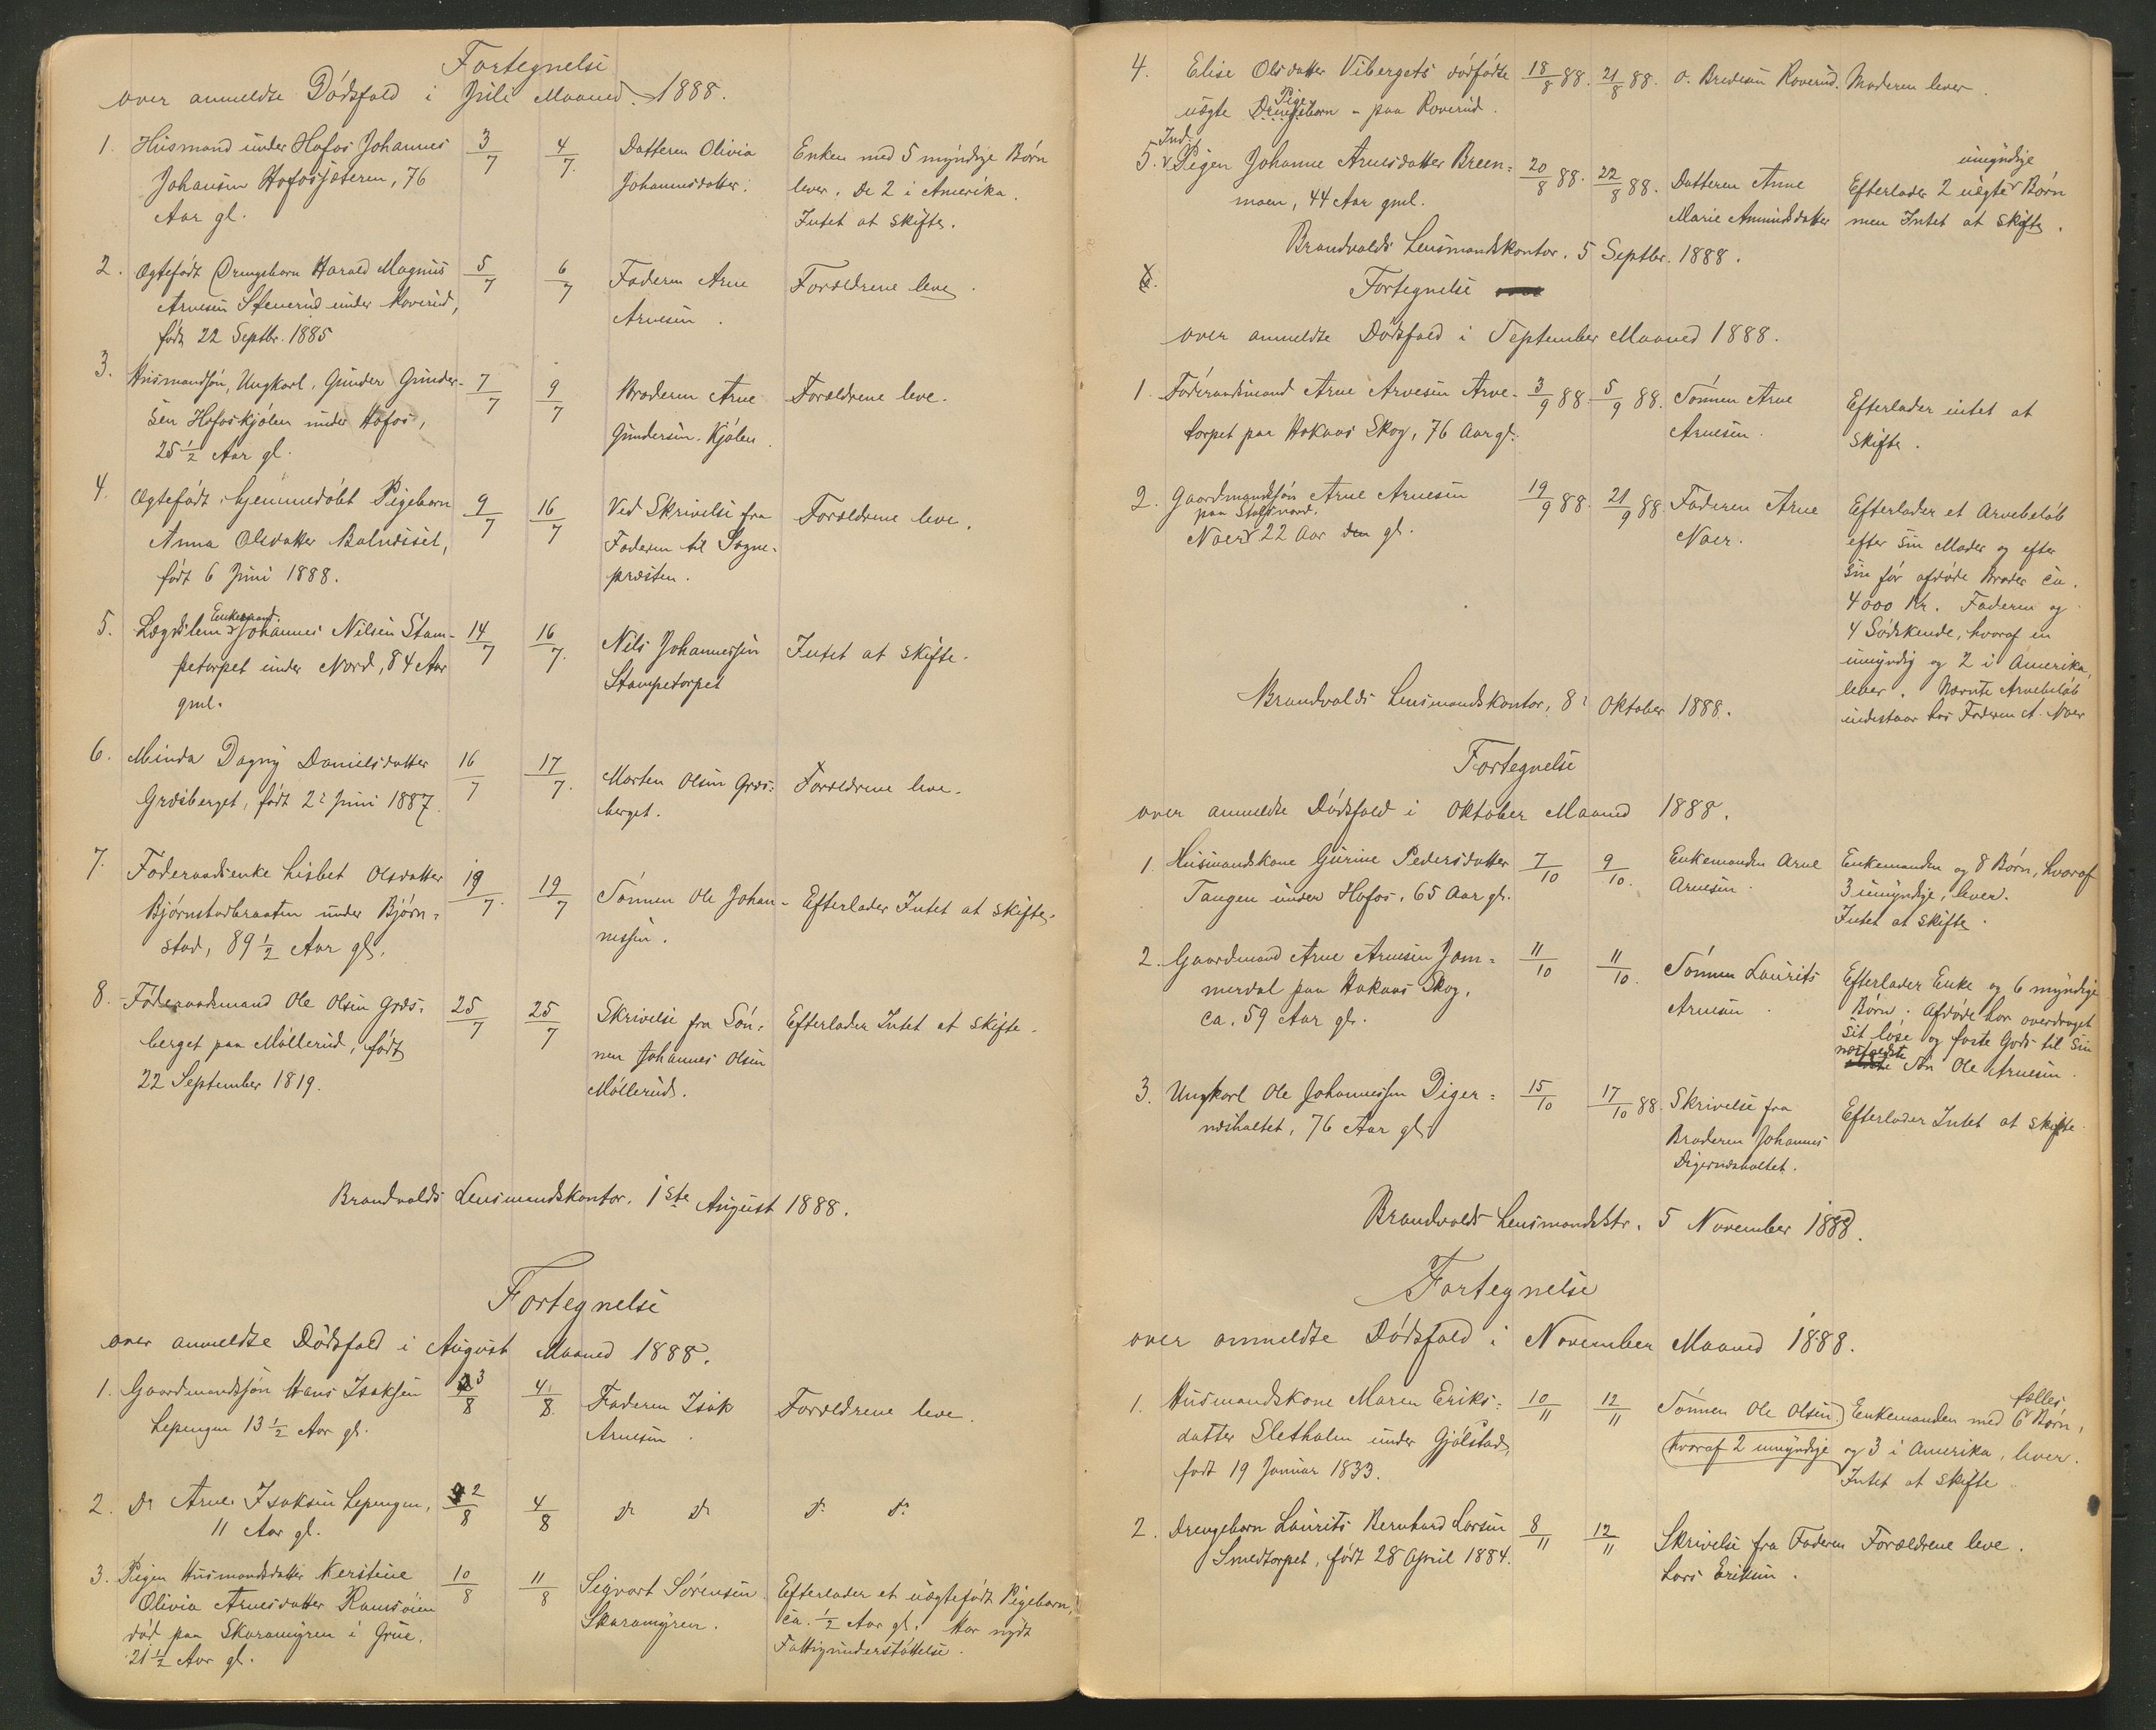 Fortegnelse
over anmeldte Dódsfald i Juli Maaned 1888.
1. Husmand under Hofos Johannes 3/7 4/7. Datteren Olivia Enken med 5 myndige Børn
Johansen Hofossjøteren, 76 Johannesdatter. lever. De 2 i Amerika.
Aar gl. Intet at skifte.
2. Ægtefødt Drengebarn Harald Magnus 5/7 6/7 Faderen Arne Forældrene leve.
Arnesen Stenerud under Roverud, Arnesen.
født 22 Septbr. 1885
3. Husmandsøn, Ungkarl, Gunder Gunder- 7/7 9/7 Broderen Arne Forældrene leve.
sen Hofoskjølen under Hofos, Gundersen Kjølen.
25 1/2 Aar gl.
4. Ægtefødt, hjemmedøbt Pigebarn 9/7 16/7 Ved Skrivelse fra Forældrene leve.
Anna Olsdatter Faderen til Sogne-
født 6 Juni 1888. præsten.
Enkemand
5. Lægdslem Johannes Nilsen Stam- 14/7 16/7. Nils Johannessen Intet at skifte.
petorpet under Nord, 84 Aar Stampetorpet
gml.
6. Minda Dagny Danielsdatter 16/7 17/7. Morten Olsen Græs- Forældrene leve.
Græsberget, født 2 Juni 1887. berget.
7. Føderaadsenke Lisbet Olsdatter 19/7. 19/7 Sønnen Ole Johan- Efterlader Intet at skifte.
Bjørnstadbraaten under Bjørn- nessen.
stad, 89 1/2 Aar gl.
8. Føderaadsmand Ole Olsen Græs- 25/7 25/7 Skrivelse fra Søn- Efterlader Intet at skifte.
berget paa Møllerud, født nen Johannes Olsen
22 September 1819. Møllerud.
Brandvolds Lensmandskontor. 1ste August 1888.
Fortegnelse
over anmeldte Dødsfald i August Maaned 1888.
1. Gaardmandssøn Hans Isaksen 3/8 4/8. Faderen Isak Forældrene leve.
Lepengen 13 1/2 Aar gl. Arnesen.
2. Do Arne Isaksen Lepengen, 2/8 4/8 Do Do Do Do
11 Aar gl.
3. Pigen Husmandsdatter Kerstine 10/8 11/8 Sigvart Sørensen Efterlader et uægtefødt Pigebarn,
Olivia Arnesdatter Ramsøien Skaramyren. ca. 1/2 Aar gl. Har nydt
død paa Skaramyren i Grue, Fattigunderstøttelse.
21 1/2 Aar gl.
4. Elise Olsdatter Vibergets dødfødte 18/8 88. 21/8 88. O. Bredesen Roverud. Moderen lever.
uægte Drengebarn Pige - paa Roverud.
Ind.
5. Pigen Johanne Arnesdatter Breen- 20/8 88. 22/8 88. Datteren Anne Efterlader 2 uægte umyndige Børn
moen, 44 Aar gml. Marie Amundsdatter men Intet at skifte.
Brandvolds Lensmandskontor. 5 Septbr. 1888.
Fortegnelse
over anmeldte Dødsfald i September Maaned 1888.
1. Føderaadsmand Arne Arnesen Arne- 3/9 88 5/9 88. Sønnen Arne Efterlader intet at
torpet paa Hokaas Skog, 76 Aar gl. Arnesen. skifte.
2. Gaardmandssøn Arne Arnesen 19/9 88. 21/9 88 Faderen Arne Efterlader et Arvebeløb
Noer 22 Aar gl. Noer. efter sin Moder og efter
sin før afdøde Broder ca.
4000 Kr. Faderen og
4 Sødskende, hvoraf en
umyndig og 2 i Amerika,
lever. Nævnte Arvebeløb
indestaar hos Faderen A. Noer
Brandvolds Lensmandskontor, 8 Oktober 1888.
Fortegnelse
over anmeldte Dødsfald i Oktober Maaned 1888.
1. Husmandskone Gurine Pedersdatter 7/10 9/10. Enkemanden Arne Enkemanden og 8 Børn, hvoraf
Tangen under Hofos, 65 Aar gl. Arnesen. 3 umyndige, lever.
Intet at skifte.
2. Gaardmand Arne Arnesen Jam- 11/10 11/10. Sønnen Laurits Efterlader Enke og 6 myndige
merdal paa Hokaas Skog, Arnesen. Børn. Afdøde har overdraget
ca. 59 Aar gl. sit løse og faste Gods til sin
næstældste Søn Ole Arnesen.
3. Ungkarl Ole Johannessen Diger- 15/10 17/10 88. Skrivelse fra Efterlader Intet at skifte.
næsholtet, 76 Aar gl. Broderen Johannes
Digernæsholtet.
Brandvolds Lensmandsktr. 5 November 1888.
Fortegnelse
over anmeldte Dødsfald i November Maaned 1888.
1. Husmandskone Maren Eriks- 10/11 12/11 Sønnen Ole Olsen Enkemanden med 6 fælles Børn,
datter Sletholen under Gjølstad, hvoraf 2 umyndige og 3 i Amerika, lever.
født 19 Januar 1833. Intet at skifte
2. Drengebarn Laurits Bernhard Larsen 8/11 12/11 Skrivelse fra Faderen Forældrene leve.
Smedtorpet, født 28 April 1884. Lars Eriksen.